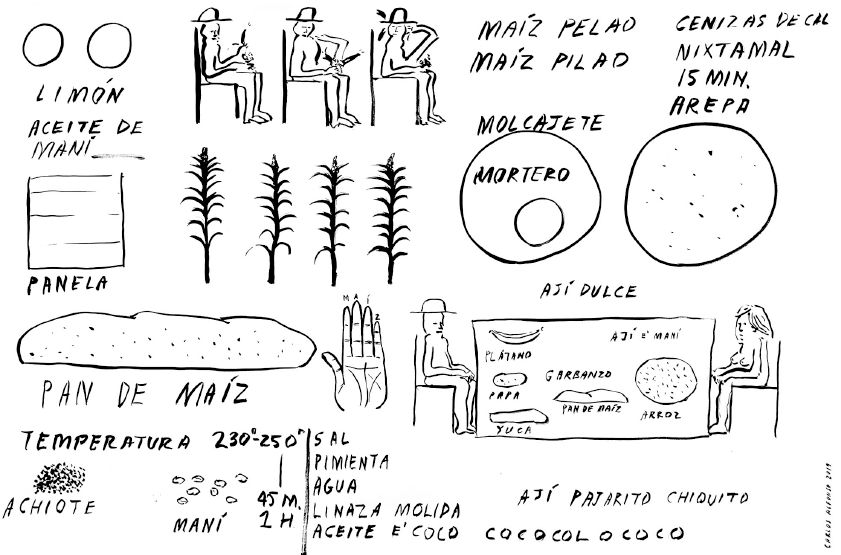 LIMÓN
ACEITE DE
MANÍ
PANELA
MAÍZ PELAO
MAÍZ PILAO
CENIZAS DE CAL
NIXTAMAL
15 MIN.
AREPA
MOLCAJETE
MORTERO
PAN DE MAÍZ
M A Í Z
AJÍ DULCE
AJÍ E' MANÍ
PLÁTANO
GARBANZO
PAPA
PAN DE MAÍZ
ARROZ
YUCA
TEMPERATURA 230°-250°
45 M.
1 H
ACHIOTE
MANÍ
SAL
PIMIENTA
AGUA
LINAZA MOLIDA
ACEITE E' COCO
COCOCOL O COCO
AJÍ PAJARITO CHIQUITO
CARLOS ALFONSO 2019